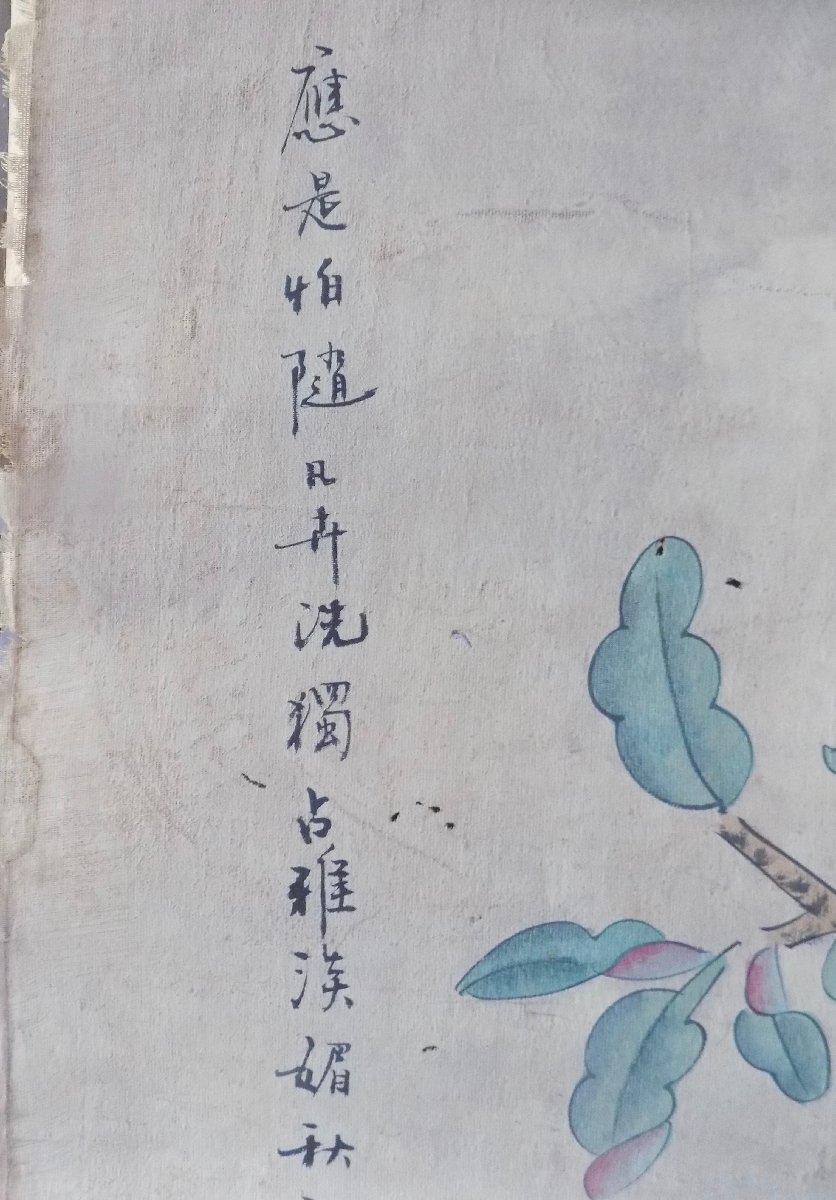 應是怕隨凡卉洗獨占雅淡媚秋